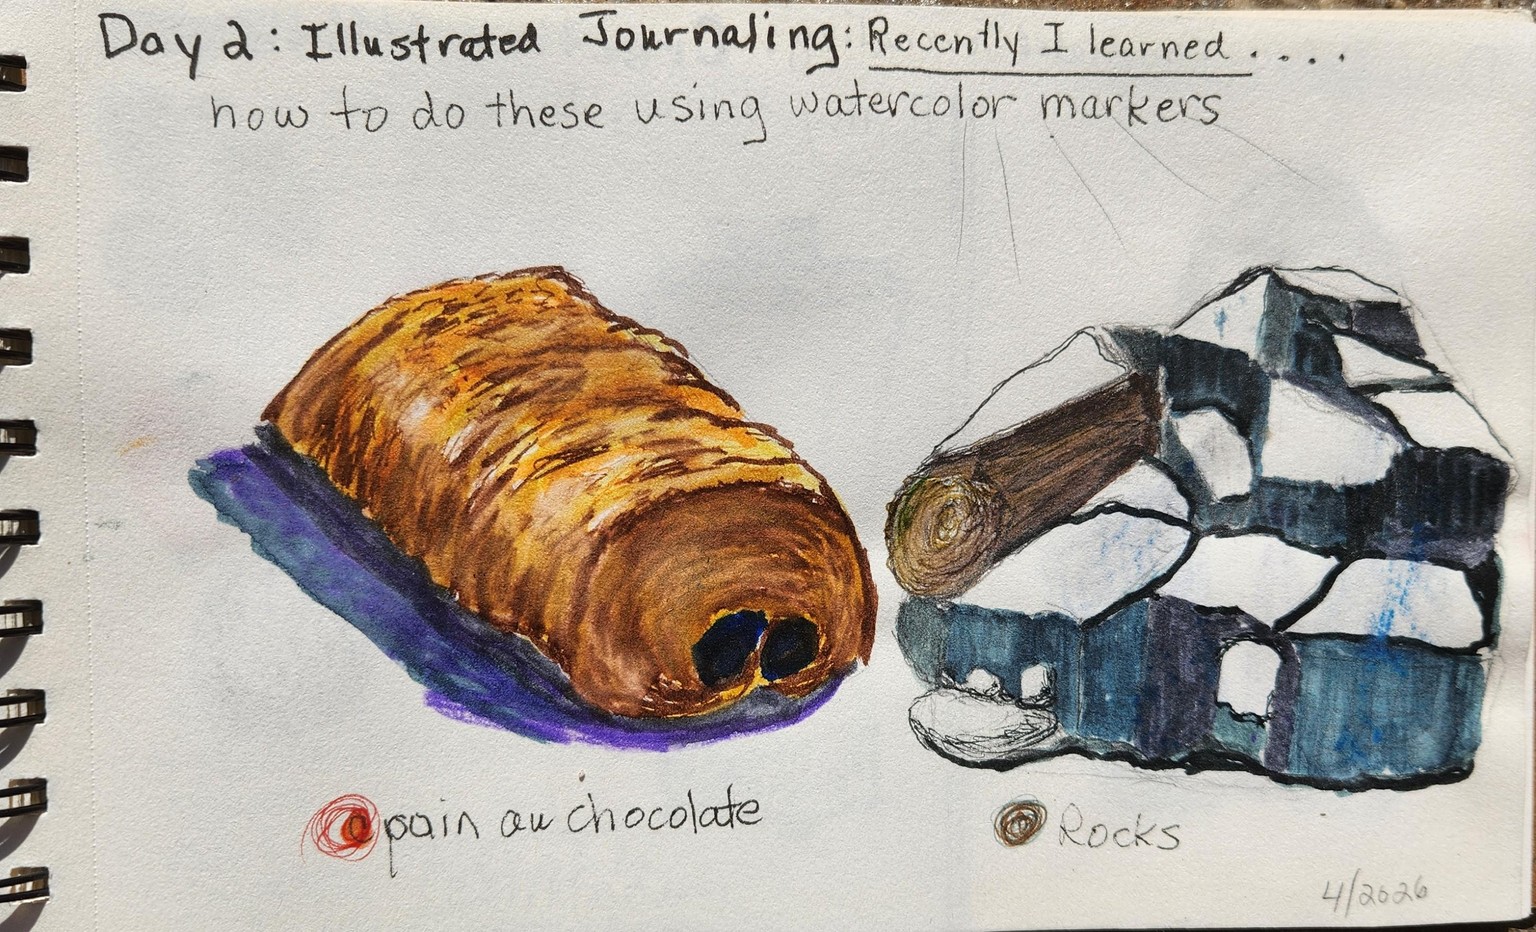 Day 2: Illustrated Journaling: Recently I learned . . . .
how to do these using watercolor markers
pain au chocolate
Rocks
4/2026